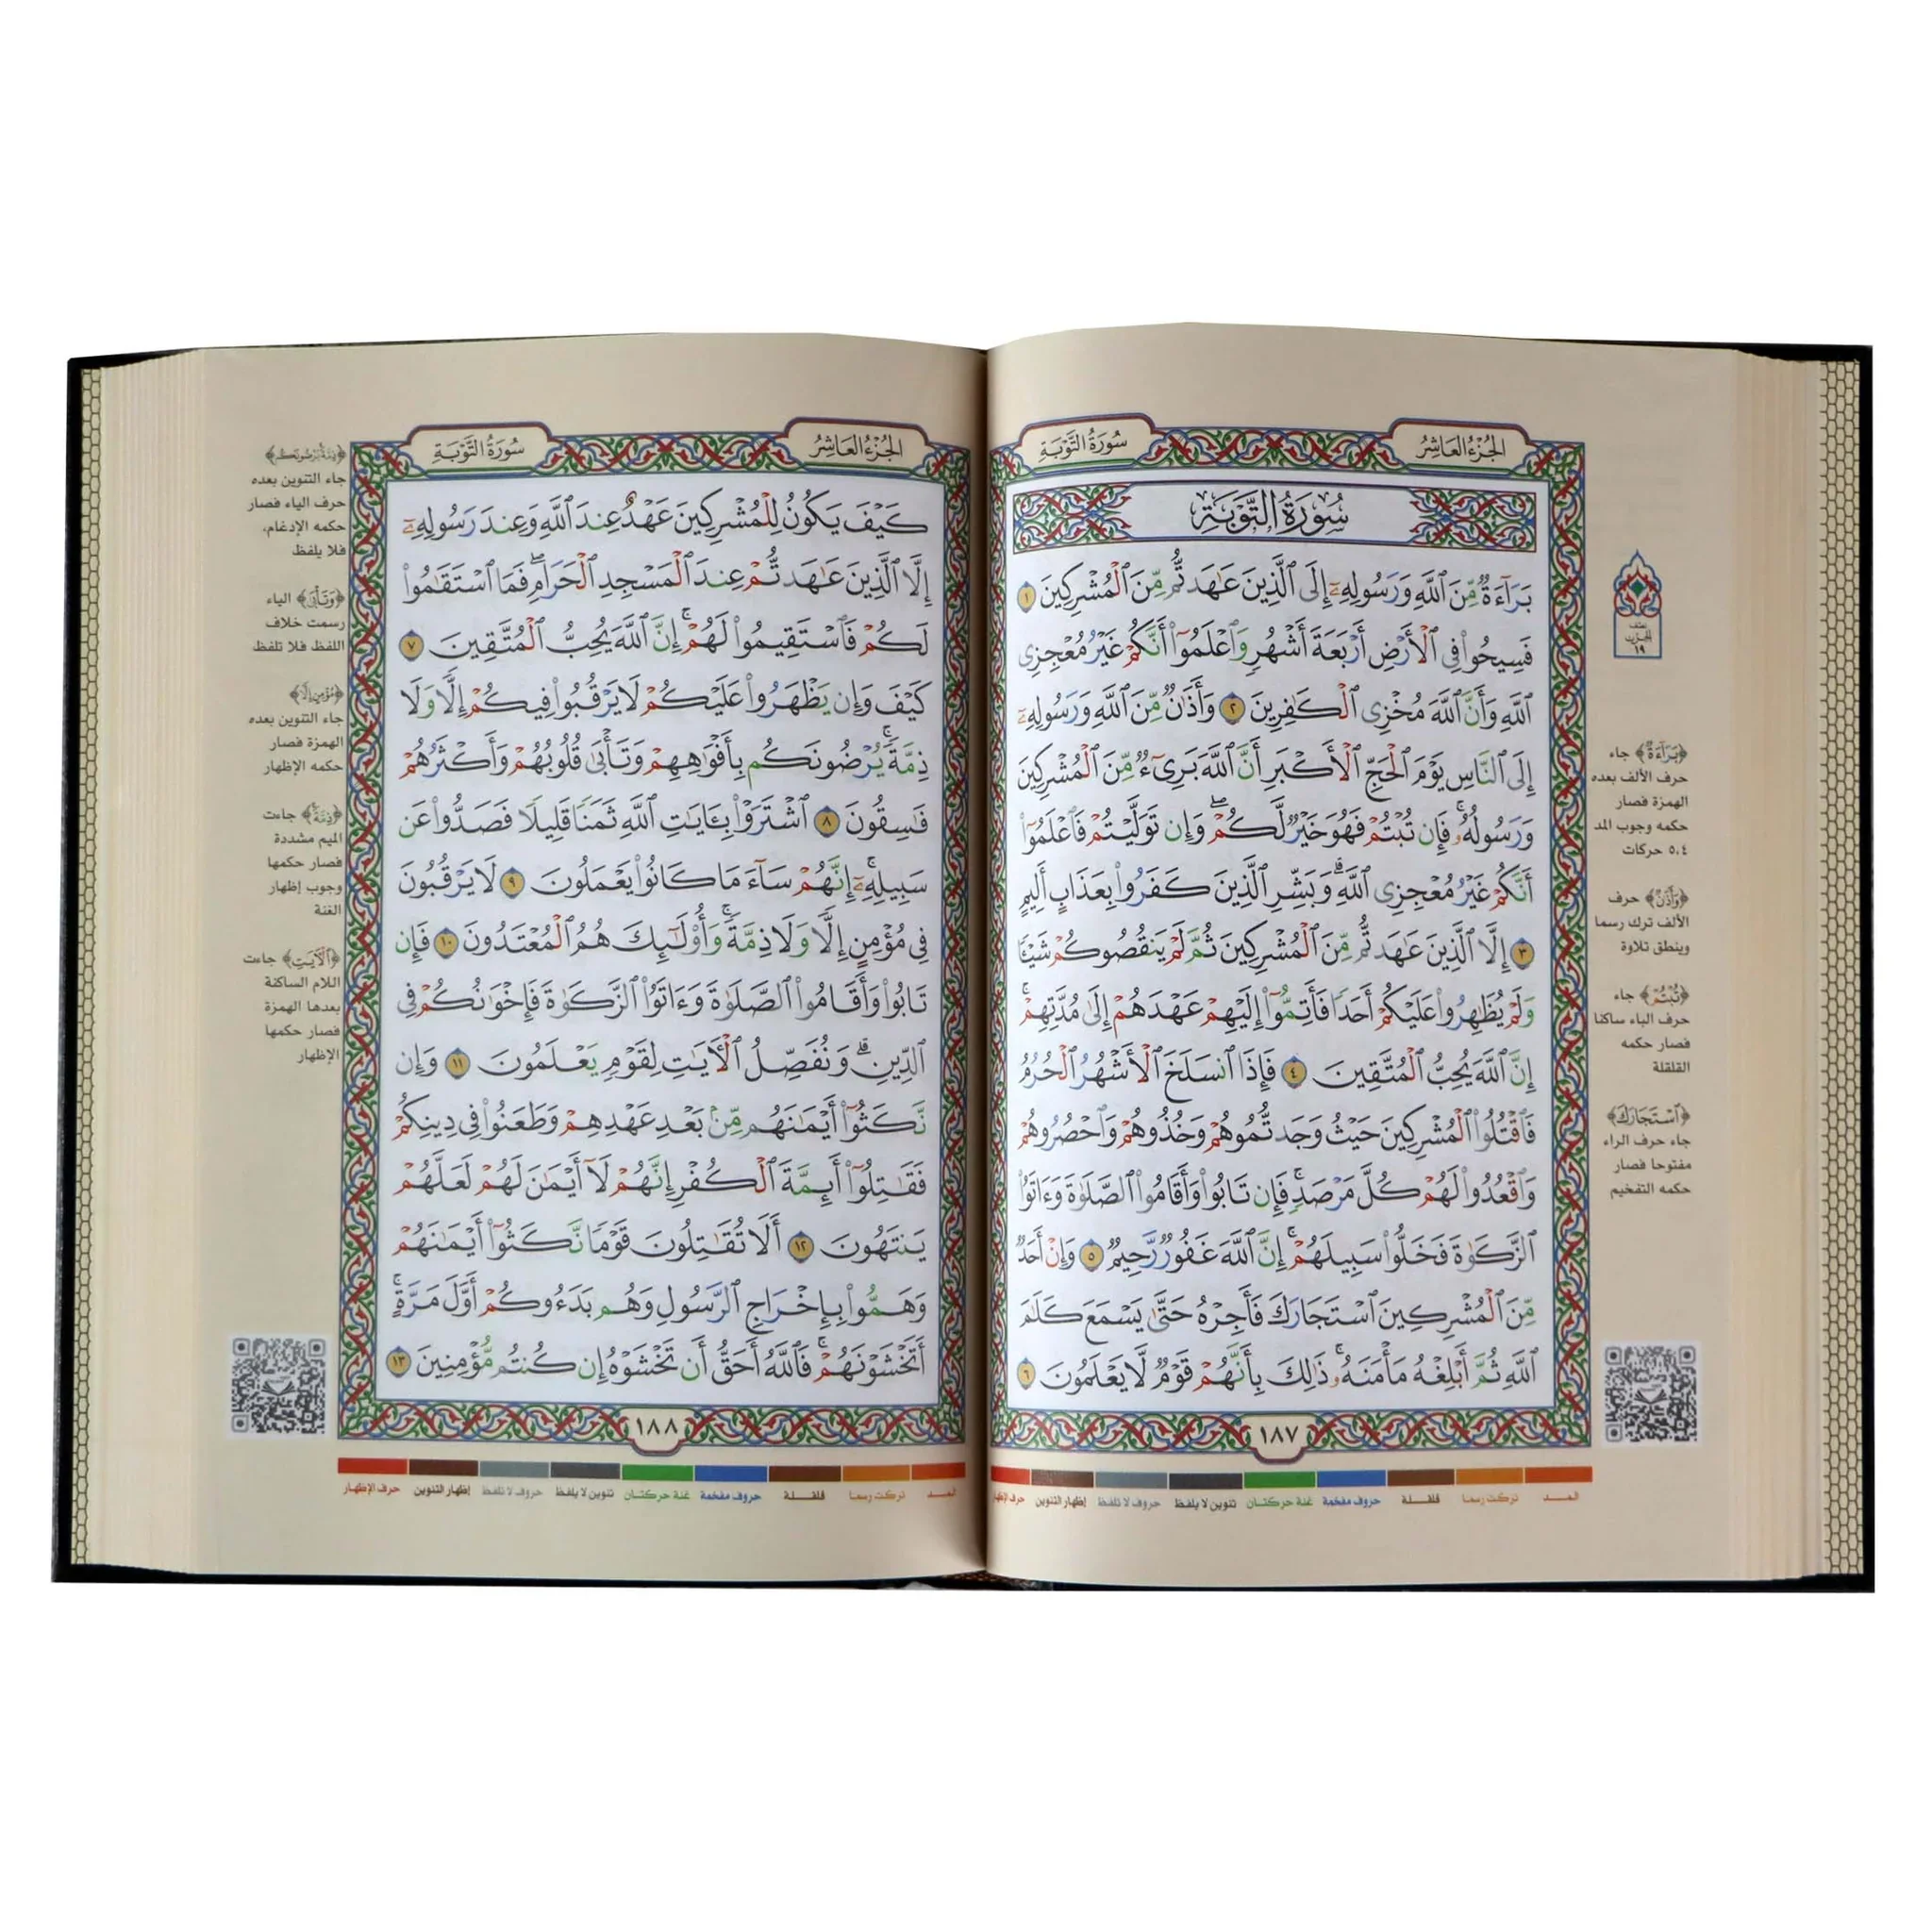 الجزء العاشر
سورة التوبة
سُورَةُ التَّوْبَةِ
بَرَآءَةٌ مِّنَ ٱللَّهِ وَرَسُولِهِۦٓ إِلَى ٱلَّذِينَ عَٰهَدتُّم مِّنَ ٱلْمُشْرِكِينَ ١
فَسِيحُوا۟ فِى ٱلْأَرْضِ أَرْبَعَةَ أَشْهُرٍ وَٱعْلَمُوٓا۟ أَنَّكُمْ غَيْرُ مُعْجِزِى
ٱللَّهِ وَأَنَّ ٱللَّهَ مُخْزِى ٱلْكَٰفِرِينَ ٢ وَأَذَٰنٌ مِّنَ ٱللَّهِ وَرَسُولِهِۦٓ
إِلَى ٱلنَّاسِ يَوْمَ ٱلْحَجِّ ٱلْأَكْبَرِ أَنَّ ٱللَّهَ بَرِىٓءٌ مِّنَ ٱلْمُشْرِكِينَ
وَرَسُولُهُۥ ۚ فَإِن تُبْتُمْ فَهُوَ خَيْرٌ لَّكُمْ ۖ وَإِن تَوَلَّيْتُمْ فَٱعْلَمُوٓا۟
أَنَّكُمْ غَيْرُ مُعْجِزِى ٱللَّهِ ۗ وَبَشِّرِ ٱلَّذِينَ كَفَرُوا۟ بِعَذَابٍ أَلِيمٍ
٣ إِلَّا ٱلَّذِينَ عَٰهَدتُّم مِّنَ ٱلْمُشْرِكِينَ ثُمَّ لَمْ يَنقُصُوكُمْ شَيْـًٔا
وَلَمْ يُظَٰهِرُوا۟ عَلَيْكُمْ أَحَدًا فَأَتِمُّوٓا۟ إِلَيْهِمْ عَهْدَهُمْ إِلَىٰ مُدَّتِهِمْ ۚ
إِنَّ ٱللَّهَ يُحِبُّ ٱلْمُتَّقِينَ ٤ فَإِذَا ٱنسَلَخَ ٱلْأَشْهُرُ ٱلْحُرُمُ
فَٱقْتُلُوا۟ ٱلْمُشْرِكِينَ حَيْثُ وَجَدتُّمُوهُمْ وَخُذُوهُمْ وَٱحْصُرُوهُمْ
وَٱقْعُدُوا۟ لَهُمْ كُلَّ مَرْصَدٍ ۚ فَإِن تَابُوا۟ وَأَقَامُوا۟ ٱلصَّلَوٰةَ وَءَاتَوُا۟
ٱلزَّكَوٰةَ فَخَلُّوا۟ سَبِيلَهُمْ ۚ إِنَّ ٱللَّهَ غَفُورٌ رَّحِيمٌ ٥ وَإِنْ أَحَدٌ
مِّنَ ٱلْمُشْرِكِينَ ٱسْتَجَارَكَ فَأَجِرْهُ حَتَّىٰ يَسْمَعَ كَلَٰمَ
ٱللَّهِ ثُمَّ أَبْلِغْهُ مَأْمَنَهُۥ ۚ ذَٰلِكَ بِأَنَّهُمْ قَوْمٌ لَّا يَعْلَمُونَ ٦
١٨٧
نصف
الحزب
١٩
﴿بَرَآءَةٌ﴾ جاء
حرف الألف بعده
الهمزة فصار
حكمه وجوب المد
٥،٤ حركات
﴿وَأَذَٰنٌ﴾ حرف
الألف ترك رسما
وينطق تلاوة
﴿تُبْتُمْ﴾ جاء
حرف الباء ساكنا
فصار حكمه
القلقلة
﴿ٱسْتَجَارَكَ﴾
جاء حرف الراء
مفتوحا فصار
حكمه التفخيم
المـد
تركت رسما
قلقـلة
حروف مفخمة
غنة حركتـان
تنوين لا يلفظ
حروف لا تلفظ
إظهار التنوين
حرف الإظهار
الجزء العاشر
سورة التوبة
كَيْفَ يَكُونُ لِلْمُشْرِكِينَ عَهْدٌ عِندَ ٱللَّهِ وَعِندَ رَسُولِهِۦٓ
إِلَّا ٱلَّذِينَ عَٰهَدتُّمْ عِندَ ٱلْمَسْجِدِ ٱلْحَرَامِ ۖ فَمَا ٱسْتَقَٰمُوا۟
لَكُمْ فَٱسْتَقِيمُوا۟ لَهُمْ ۚ إِنَّ ٱللَّهَ يُحِبُّ ٱلْمُتَّقِينَ ٧
كَيْفَ وَإِن يَظْهَرُوا۟ عَلَيْكُمْ لَا يَرْقُبُوا۟ فِيكُمْ إِلًّا وَلَا
ذِمَّةً ۚ يُرْضُونَكُم بِأَفْوَٰهِهِمْ وَتَأْبَىٰ قُلُوبُهُمْ وَأَكْثَرُهُمْ
فَٰسِقُونَ ٨ ٱشْتَرَوْا۟ بِـَٔايَٰتِ ٱللَّهِ ثَمَنًا قَلِيلًا فَصَدُّوا۟ عَن
سَبِيلِهِۦٓ ۚ إِنَّهُمْ سَآءَ مَا كَانُوا۟ يَعْمَلُونَ ٩ لَا يَرْقُبُونَ
فِى مُؤْمِنٍ إِلًّا وَلَا ذِمَّةً ۚ وَأُو۟لَٰٓئِكَ هُمُ ٱلْمُعْتَدُونَ ١٠ فَإِن
تَابُوا۟ وَأَقَامُوا۟ ٱلصَّلَوٰةَ وَءَاتَوُا۟ ٱلزَّكَوٰةَ فَإِخْوَٰنُكُمْ فِى
ٱلدِّينِ ۗ وَنُفَصِّلُ ٱلْـَٔايَٰتِ لِقَوْمٍ يَعْلَمُونَ ١١ وَإِن
نَّكَثُوٓا۟ أَيْمَٰنَهُم مِّنۢ بَعْدِ عَهْدِهِمْ وَطَعَنُوا۟ فِى دِينِكُمْ
فَقَٰتِلُوٓا۟ أَئِمَّةَ ٱلْكُفْرِ إِنَّهُمْ لَآ أَيْمَٰنَ لَهُمْ لَعَلَّهُمْ
يَنتَهُونَ ١٢ أَلَا تُقَٰتِلُونَ قَوْمًا نَّكَثُوٓا۟ أَيْمَٰنَهُمْ
وَهَمُّوا۟ بِإِخْرَاجِ ٱلرَّسُولِ وَهُم بَدَءُوكُمْ أَوَّلَ مَرَّةٍ ۚ
أَتَخْشَوْنَهُمْ ۚ فَٱللَّهُ أَحَقُّ أَن تَخْشَوْهُ إِن كُنتُم مُّؤْمِنِينَ ١٣
١٨٨
﴿ذِمَّةً يُرْضُونَكُم﴾
جاء التنوين بعده
حرف الياء فصار
حكمه الإدغام،
فلا يلفظ
﴿وَتَأْبَىٰ﴾ الياء
رسمت خلاف
اللفظ فلا تلفظ
﴿مُؤْمِنٍ إِلًّا﴾
جاء التنوين بعده
الهمزة فصار
حكمه الإظهار
﴿ذِمَّةً﴾ جاءت
الميم مشددة
فصار حكمها
وجوب إظهار
الغنة
﴿ٱلْـَٔايَٰتِ﴾ جاءت
اللام الساكنة
بعدها الهمزة
فصار حكمها
الإظهار
المـد
تركت رسما
قلقـلة
حروف مفخمة
غنة حركتـان
تنوين لا يلفظ
حروف لا تلفظ
إظهار التنوين
حرف الإظهار